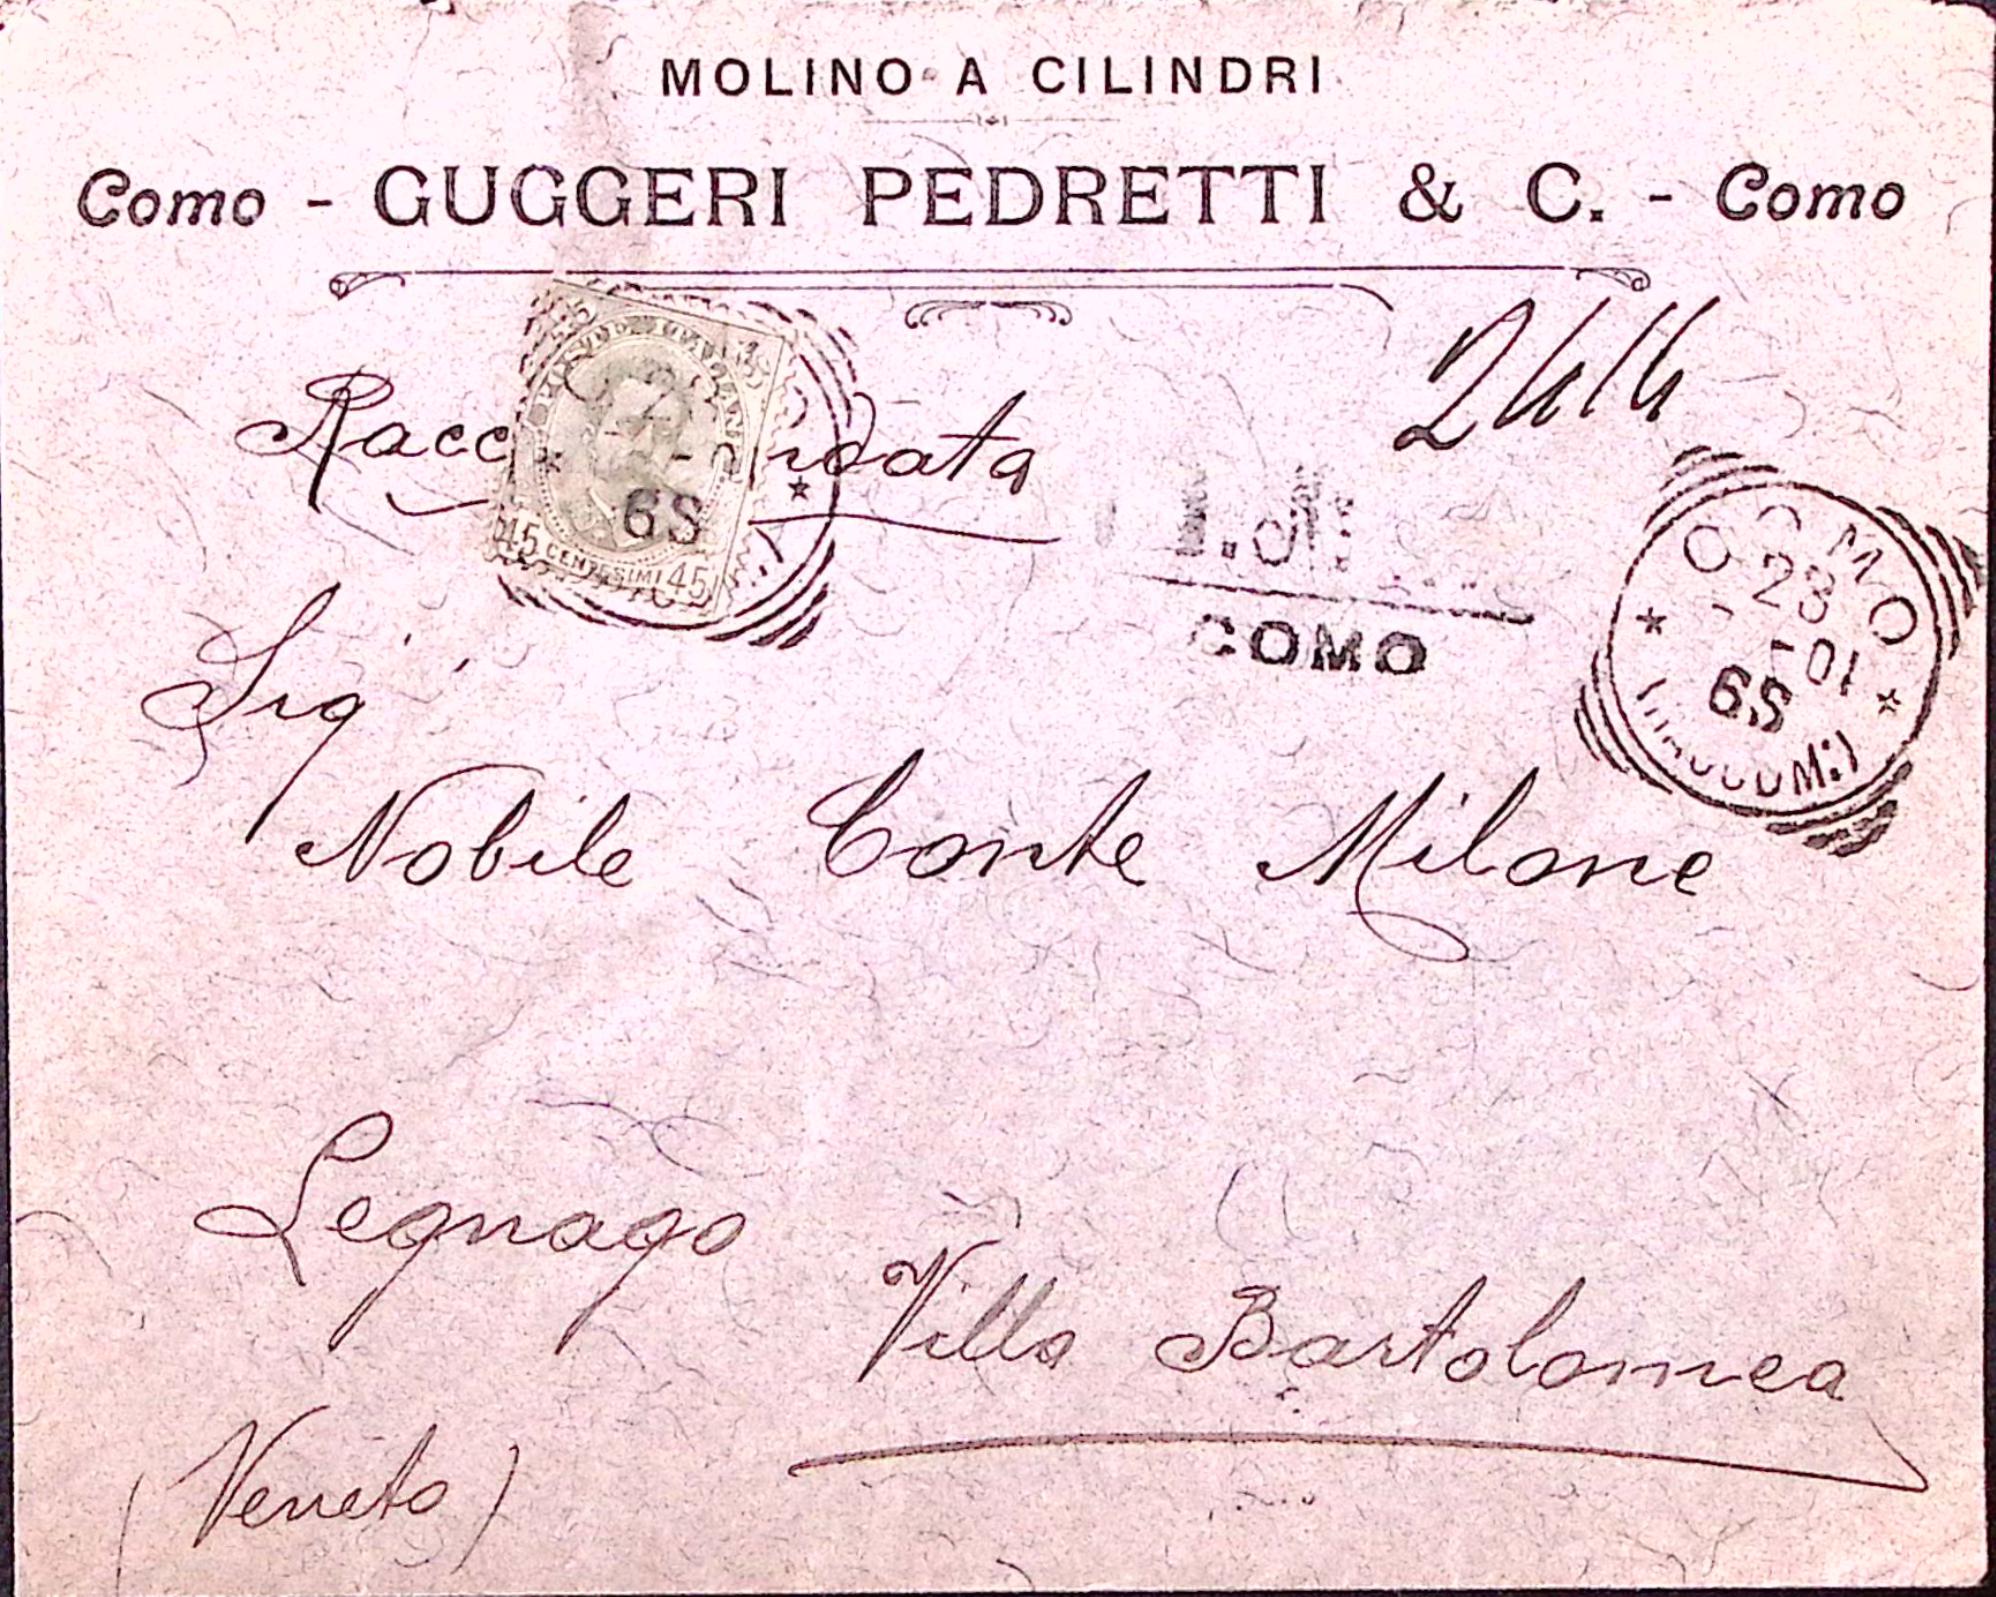 MOLINO A CILINDRI
Como - GUGGERI PEDRETTI & C. - Como
2414
Raccomandata
45 CENTESIMI 45
6S
COMO
COMO
23
- - 01
6S
Sig
Nobile Conte Milone
Legnago
Villa Bartolomea
(Veneto)